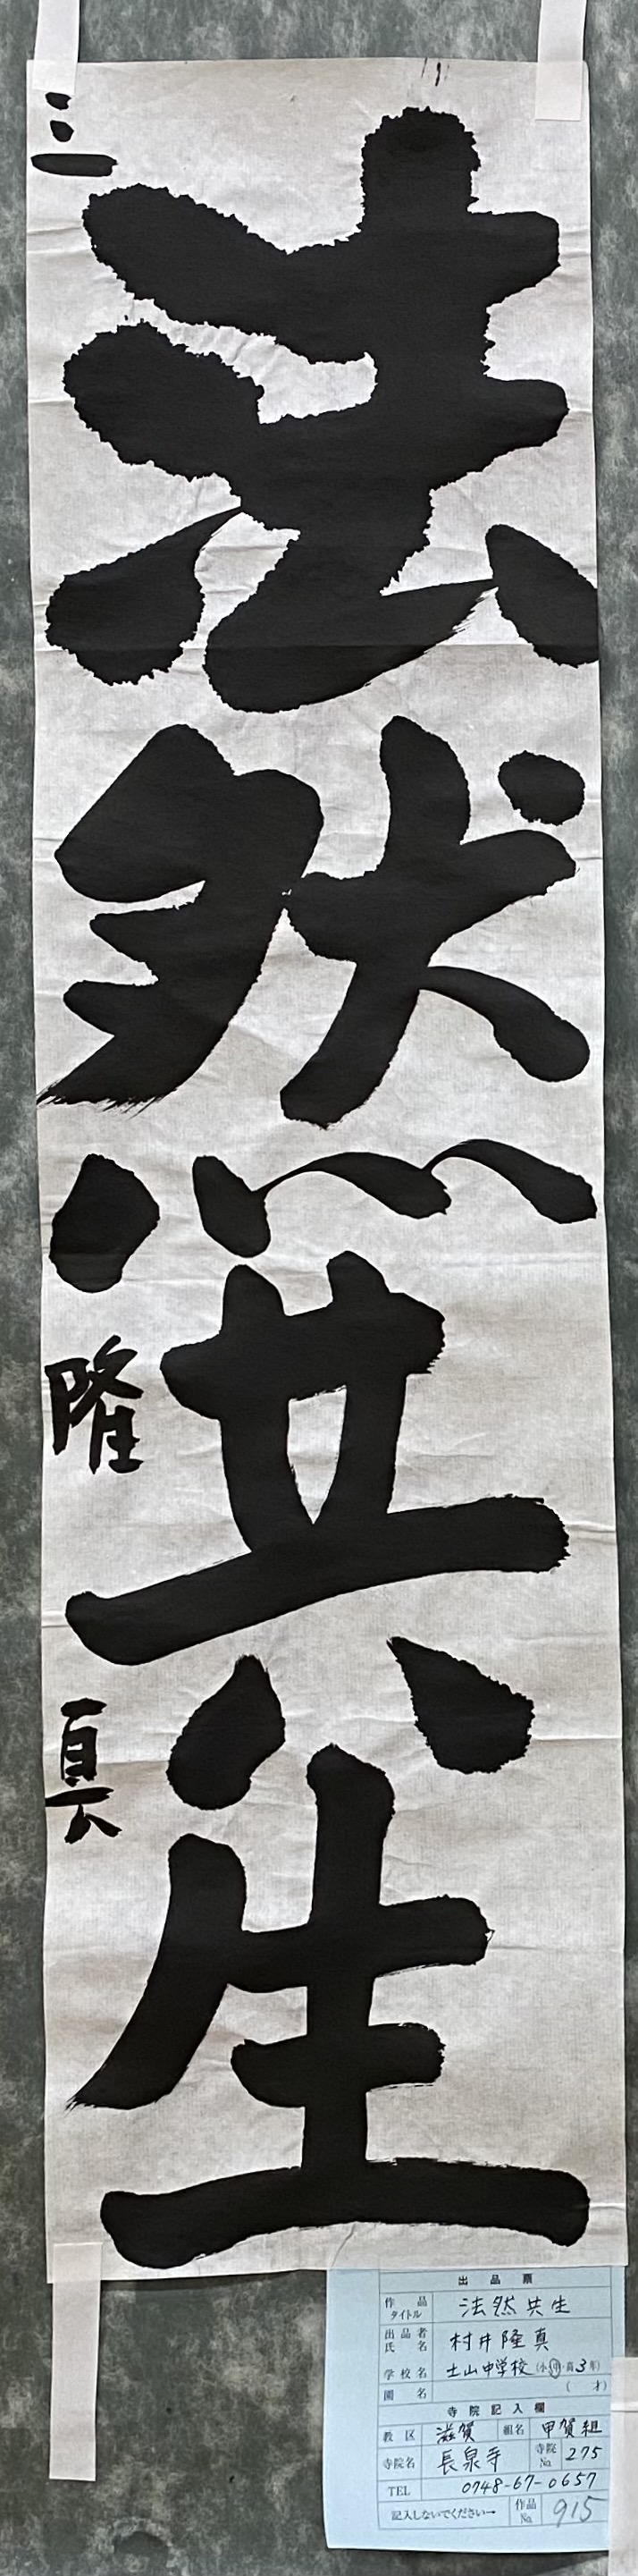 法然共生
三 隆真
出品票
作品タイトル 法然共生
出品者氏名 村井隆真
学校名 土山中学校 (小・中・高3年)
園名 ( 才)
寺院記入欄
教区 滋賀 組名 甲賀組
寺院名 長泉寺 寺院No. 275
TEL 0748-67-0657
記入しないでください→ 作品No. 915